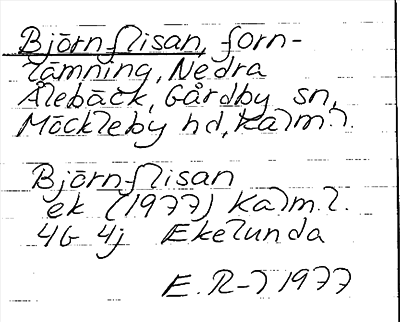 Björnflisan, forn-
lämning, Nedra
Ålebäck, Gårdby sn,
Möckleby hd, Kalm.l.
Björnflisan
ek (1977) Kalm.l.
4G 4j Ekelunda
E.R-l 1977